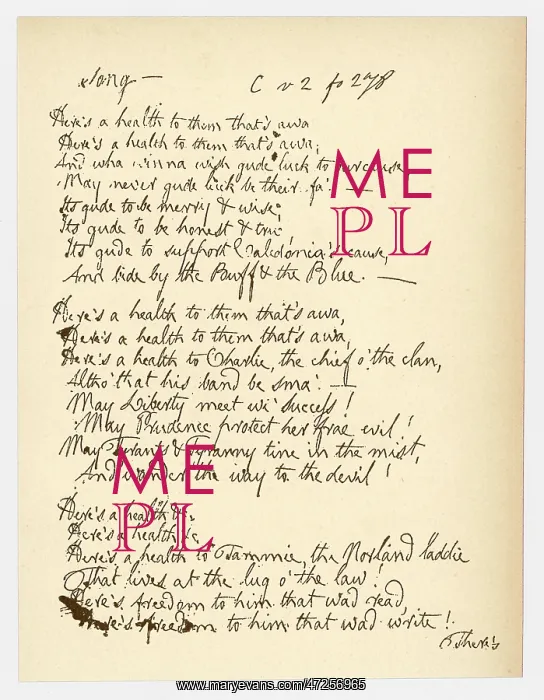 Song —
C v 2 fo 278
Here's a health to them that's awa
Here's a health to them that's awa;
And wha winna wish gude luck to our cause
May never gude luck be their fa'! —
It's gude to be merry & wise;
It's gude to be honest & true
It's gude to support Caledonia's cause,
And bide by the Buff & the Blue. —
Here's a health to them that's awa,
Here's a health to them that's awa,
Here's a health to Charlie, the chief o' the clan,
Altho' that his band be sma'. —
May Liberty meet wi' success!
May Prudence protect her frae evil!
May Tyrants & Tyranny tine in the mist,
And wander the way to the devil!
Here's a health &c.
Here's a health &c
Here's a health to Tammie, the Norland laddie
That lives at the lug o' the law!
Here's freedom to him that wad read,
Here's freedom to him that wad write!
There's
ME
PL
ME
PL
www.maryevans.com/47256965